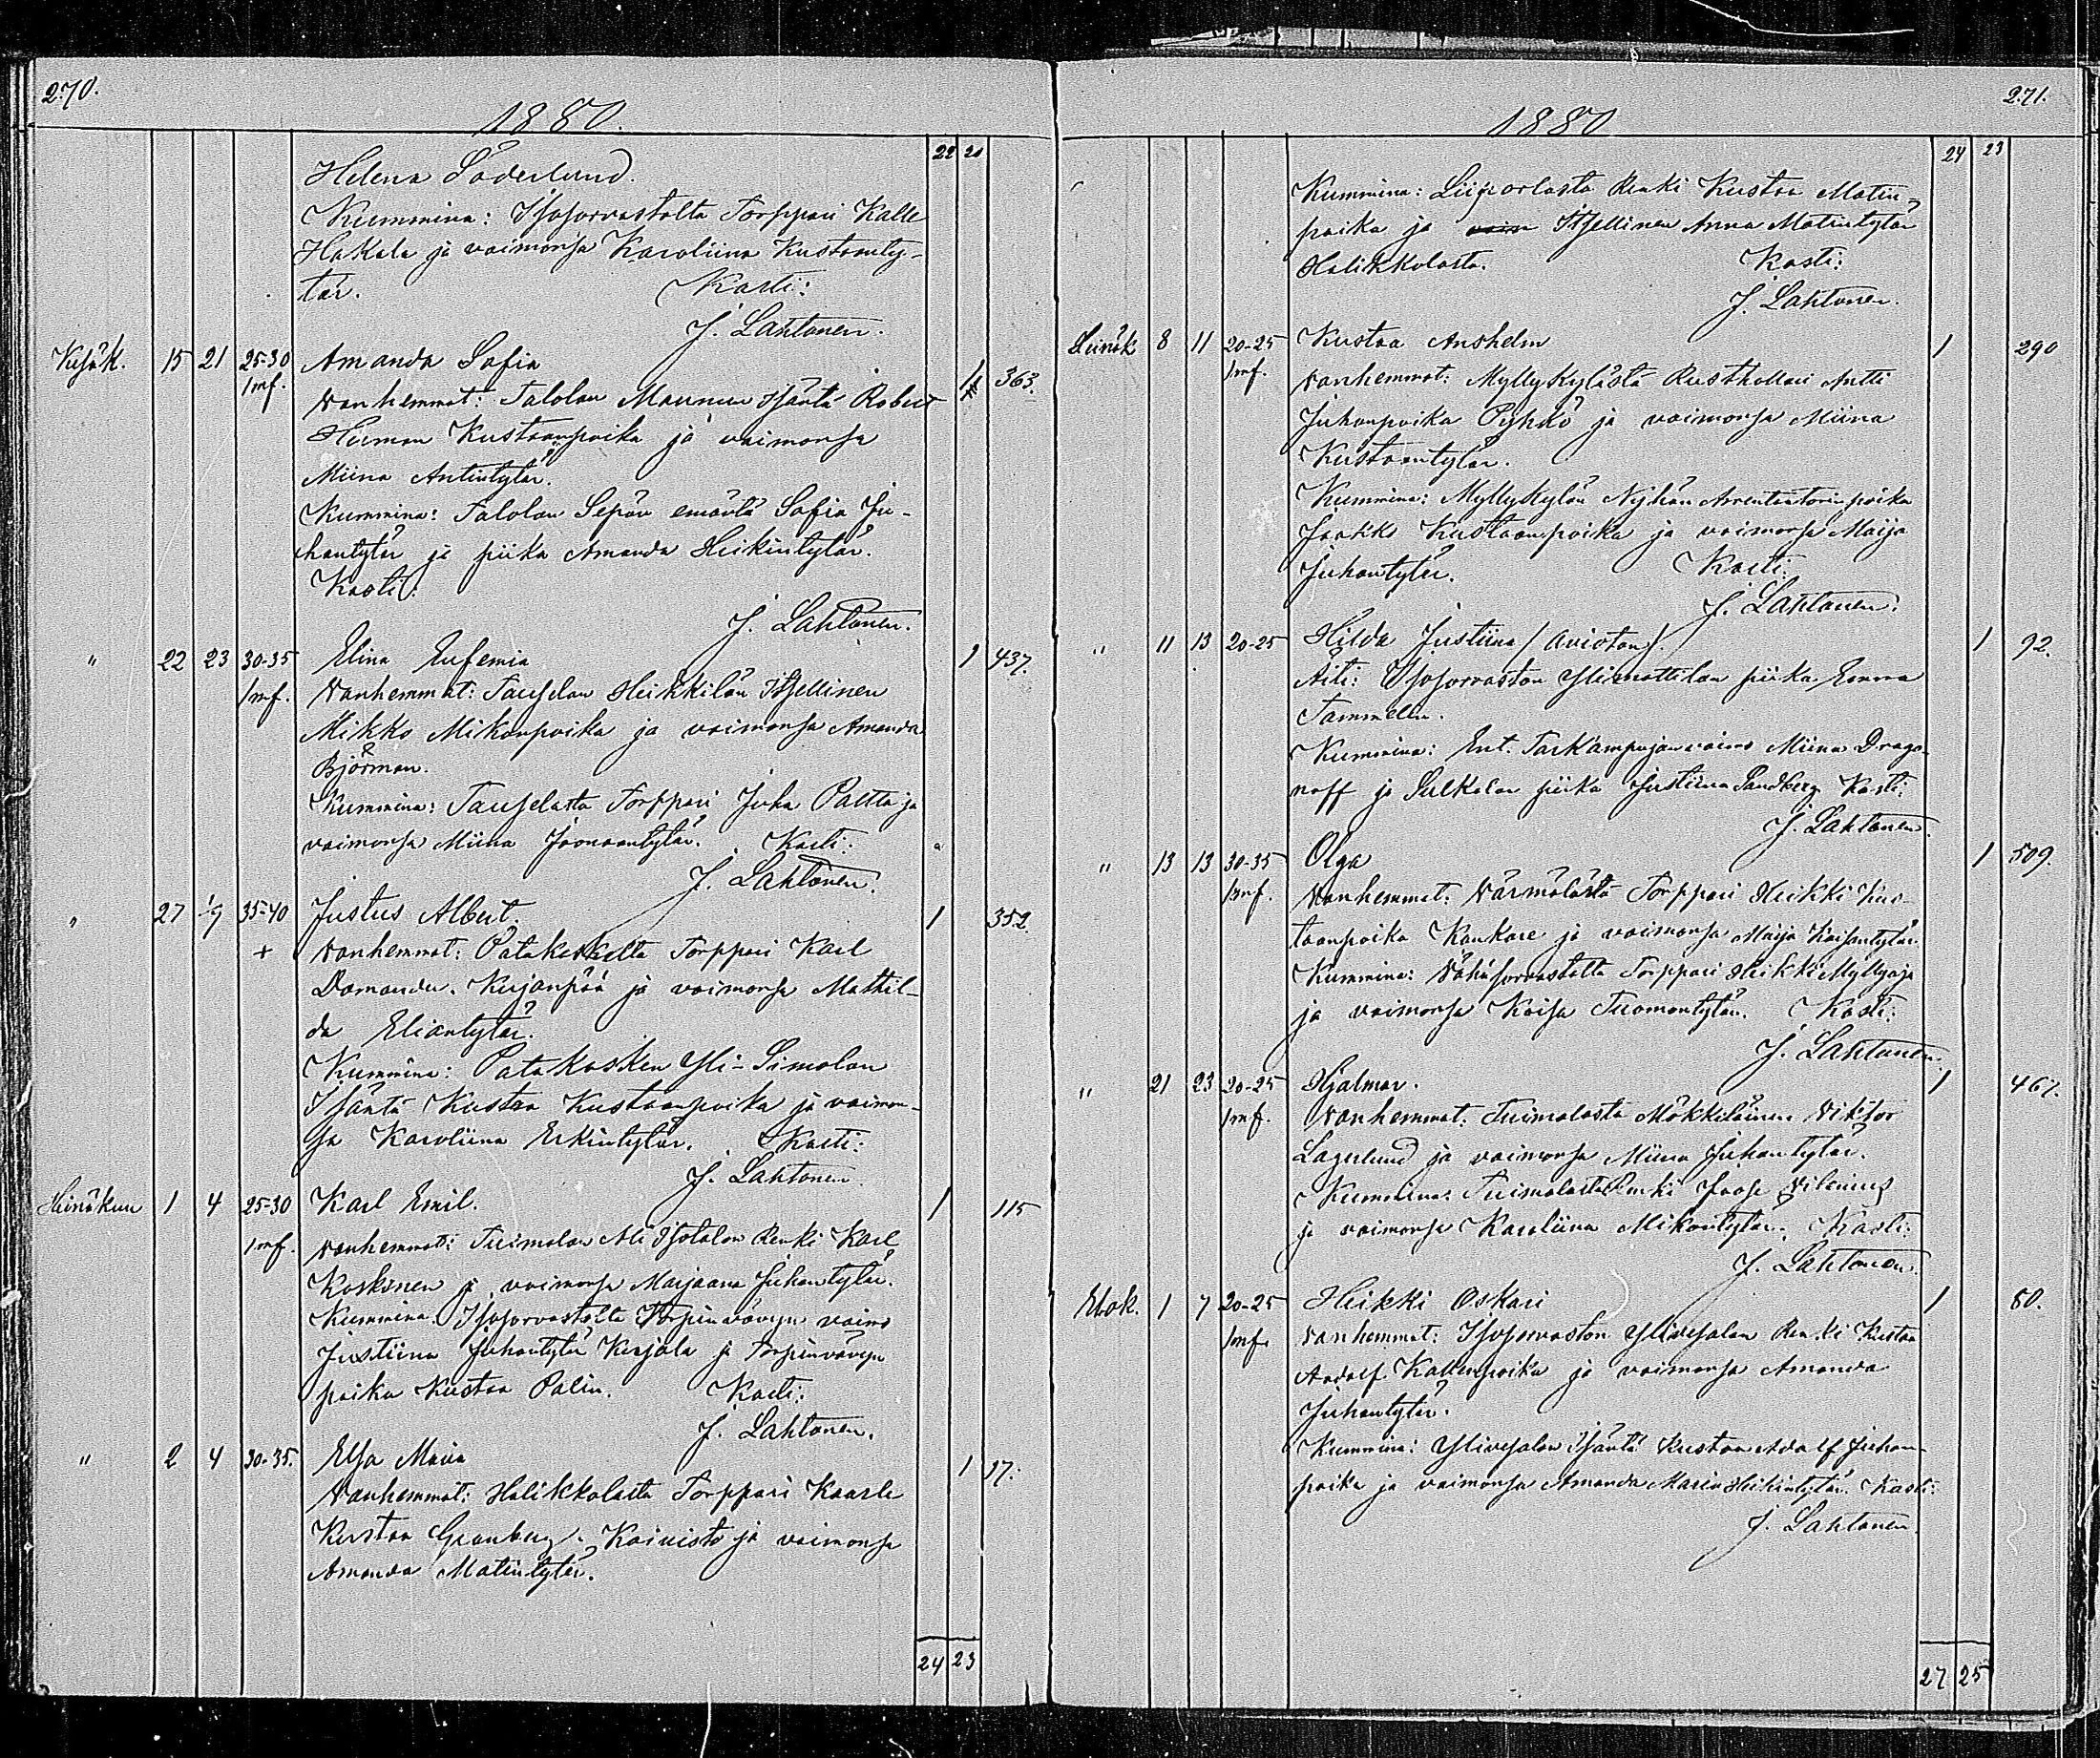 270.
1880.
22 21
Helena Söderlund.
Kummina: Isosorvastolta Torppari Kalle
Hakala ja vaimonsa Karoliina Kustaanty-
tär. Kasti:
J. Lahtonen.
Kesäk. 15 21 25-30 Amanda Sofia
1mf. Vanhemmat: Talolan Maunun Isäntä Robert 1 363.
Herman Kustaanpoika ja vaimonsa
Miina Antintytär.
Kummina: Talolan Sepän emäntä Sofia Ju-
hantytär ja piika Amanda Heikintytär.
Kasti:
J. Lahtonen.
" 22 23 30-35 Elina Eufemia 1 437.
1mf. Vanhemmat: Tauselan Heikkilän Itsellinen
Mikko Mikonpoika ja vaimonsa Amanda
Björman.
Kummina: Tauselasta Torppari Juha Paltta ja
vaimonsa Miina Joonaantytär. Kasti:
J. Lahtonen.
" 27 1/7 35-40 Justus Albert. 1 352.
+ Vanhemmat: Patakoskelta Torppari Karl
Kirjanpää ja vaimonsa Mathil-
da Eliantytär.
Kummina: Patakosken Yli-Simolan
Isäntä Kustaa Kustaanpoika ja vaimon-
sa Karoliina Erkintytär. Kasti:
J. Lahtonen.
Heinäkuu 1 4 25-30 Karl Emil. 1 115
1mf. Vanhemmat: Tuimalan Ali Isotalon Renki Karl
Koskinen ja vaimonsa Marjaana Juhantytär.
Kummina: Isosorvastolta Torpinvävyn vaimo
Justiina Juhantytär Kirjala ja Torpinvävyn
poika Kustaa Palin. Kasti:
J. Lahtonen.
" 2 4 30-35. Elsa Maria 1 17.
Vanhemmat: Halikkolasta Torppari Kaarle
Kustaa Granberg. Koivisto ja vaimonsa
Amanda Matintytär.
24 23
271.
1880
24 23
Kummina: Liipolasta Renki Kustaa Matin-
poika ja Itsellinen Anna Matintytär
Halikkolasta. Kasti:
J. Lahtonen.
Heinäk 8 11 20-25 Kustaa Anshelm 1 290
1mf. Vanhemmat: Myllykylästä Rusthollari Antti
Juhanpoika Pyhkö ja vaimonsa Miina
Kustaantytär.
Kummina: Myllykylän Arrentaatorinpoika
Jaakko Kustaanpoika ja vaimonsa Maija
Juhantytär. Kasti:
J. Lahtonen.
" 11 13 20-25 Hilda Justiina (Avioton). 1 92.
Äiti: Isosorvaston Ylimattilan piika Emma
Tammelin.
Kummina: Ent. vaimo Miina Drago-
noff ja Sulkalan piika Justiina Sandberg. Kasti:
J. Lahtonen.
" 13 13 30-35 Olga 1 509.
1mf. Vanhemmat: Värmälästä Torppari Heikki Kus-
taanpoika Kankare ja vaimonsa Maija Kaisantytär.
Kummina: Vähäsorvastolta Torppari Heikki Myllyoja
ja vaimonsa Kaisa Tuomontytär. Kasti:
J. Lahtonen.
" 21 23 20-25 Hjalmar. 1 467.
1mf. Vanhemmat: Tuimalasta Mökkiläinen Viktor
Lagerlund ja vaimonsa Miina Juhantytär.
Kummina: Tuimalasta Renki Joose Vilenius
ja vaimonsa Karoliina Mikontytär. Kasti:
J. Lahtonen.
Elok. 1 7 20-25 Heikki Oskari 1 80.
1mf. Vanhemmat: Isosorvaston Ylivesalan Renki Kustaa
Aadolf Kallenpoika ja vaimonsa Amanda
Juhantytär.
Kummina: Ylivesalan Isäntä Kustaa Adolf Juhan-
poika ja vaimonsa Amanda Maria Heikintytär. Kasti:
J. Lahtonen.
27 25